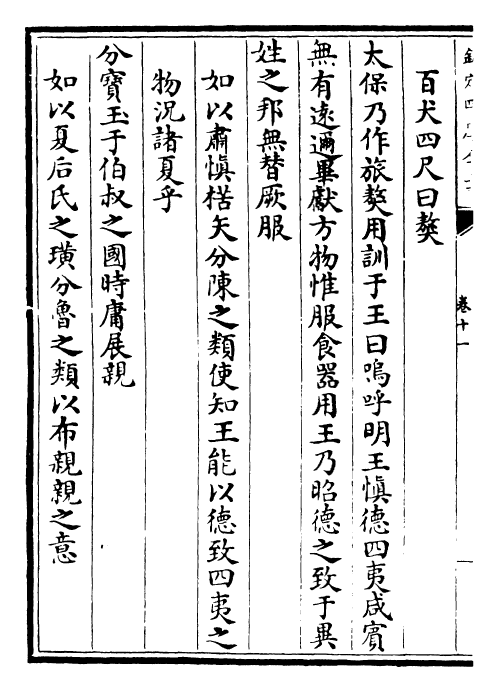 卷十一
百犬四尺曰獒
太保乃作旅獒用訓于王曰嗚呼明王慎德四夷咸賓
無有遠邇畢獻方物惟服食器用王乃昭德之致于異
姓之邦無替厥服
如以肅慎楛矢分陳之類使知王能以德致四夷之
物況諸夏乎
分寶玉于伯叔之國時庸展親
如以夏后氏之璜分魯之類以布親親之意